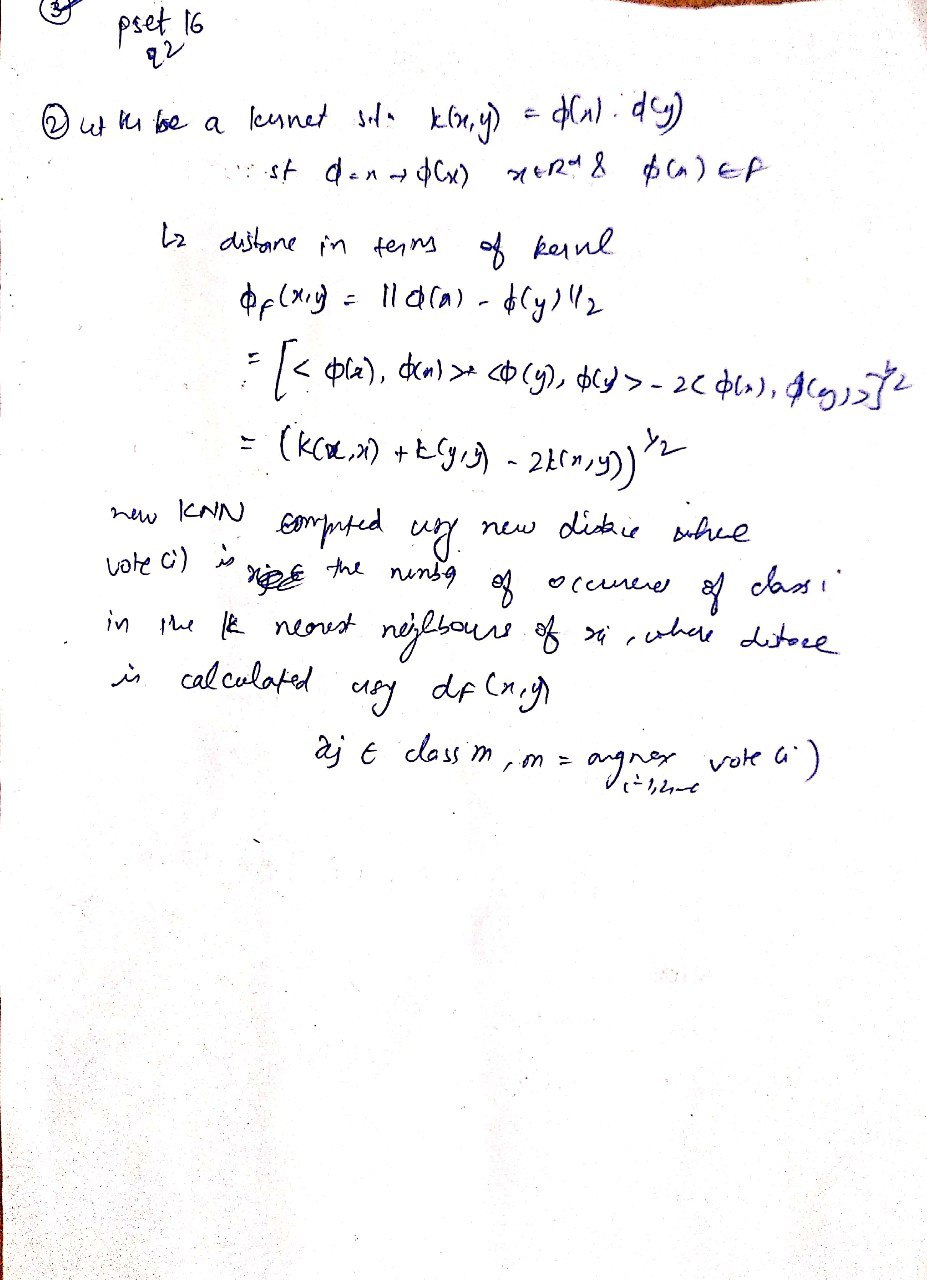 ③
pset 16
q2
② let k be a kernel s.t. k(x,y) = φ(x) . φ(y)
st φ = x → φ(x) x ∈ R^d & φ(x) ∈ F
L2 distance in terms of kernel
φ_F(x,y) = ||φ(x) - φ(y)||_2
= [< φ(x), φ(x) > + <φ(y), φ(y)> - 2< φ(x), φ(y)>]^{1/2}
= (k(x,x) + k(y,y) - 2k(x,y))^{1/2}
new KNN computed using new distance where
vote(i) is the number of occurences of class i
in the k nearest neighbours of xj, where distance
is calculated using d_F(x,y)
xj ∈ class m, m = argmax vote(i)
i=1,2,...c